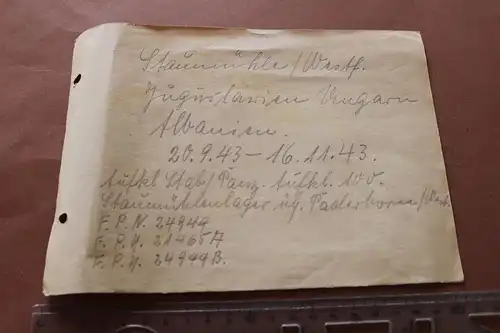 Staumühle/Westf.
Jugoslavien Ungarn
Albanien.
20.9.43 – 16.11.43.
Aufkl. Stab/Panz. Aufkl. 100.
Staumühlenlager üb. Paderborn/West.
F.P.N. 24944
F.P.N. 21465A
F.P.N. 24944B.